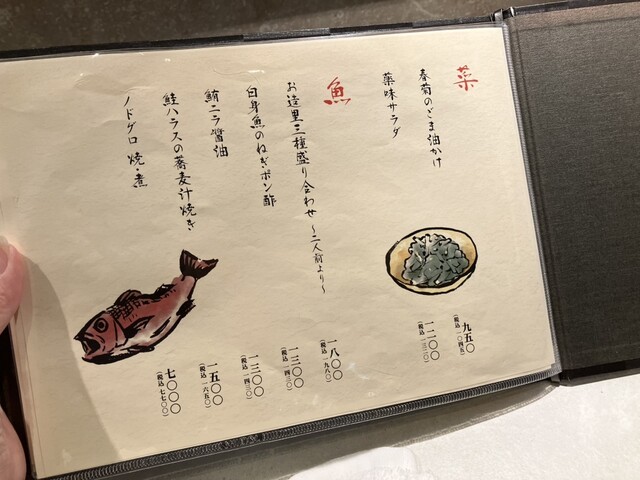 菜
春菊のごま油かけ
九五〇
(税込 一〇四五)
薬味サラダ
一二〇〇
(税込 一三二〇)
魚
お造里三種盛り合わせ 〜二人前より〜
一八〇〇
(税込 一九八〇)
白身魚のねぎポン酢
一三〇〇
(税込 一四三〇)
鮪ニラ醤油
一三〇〇
(税込 一四三〇)
鮭ハラスの蕎麦汁焼き
一五〇〇
(税込 一六五〇)
ノドグロ 焼・煮
七〇〇〇
(税込 七七〇〇)